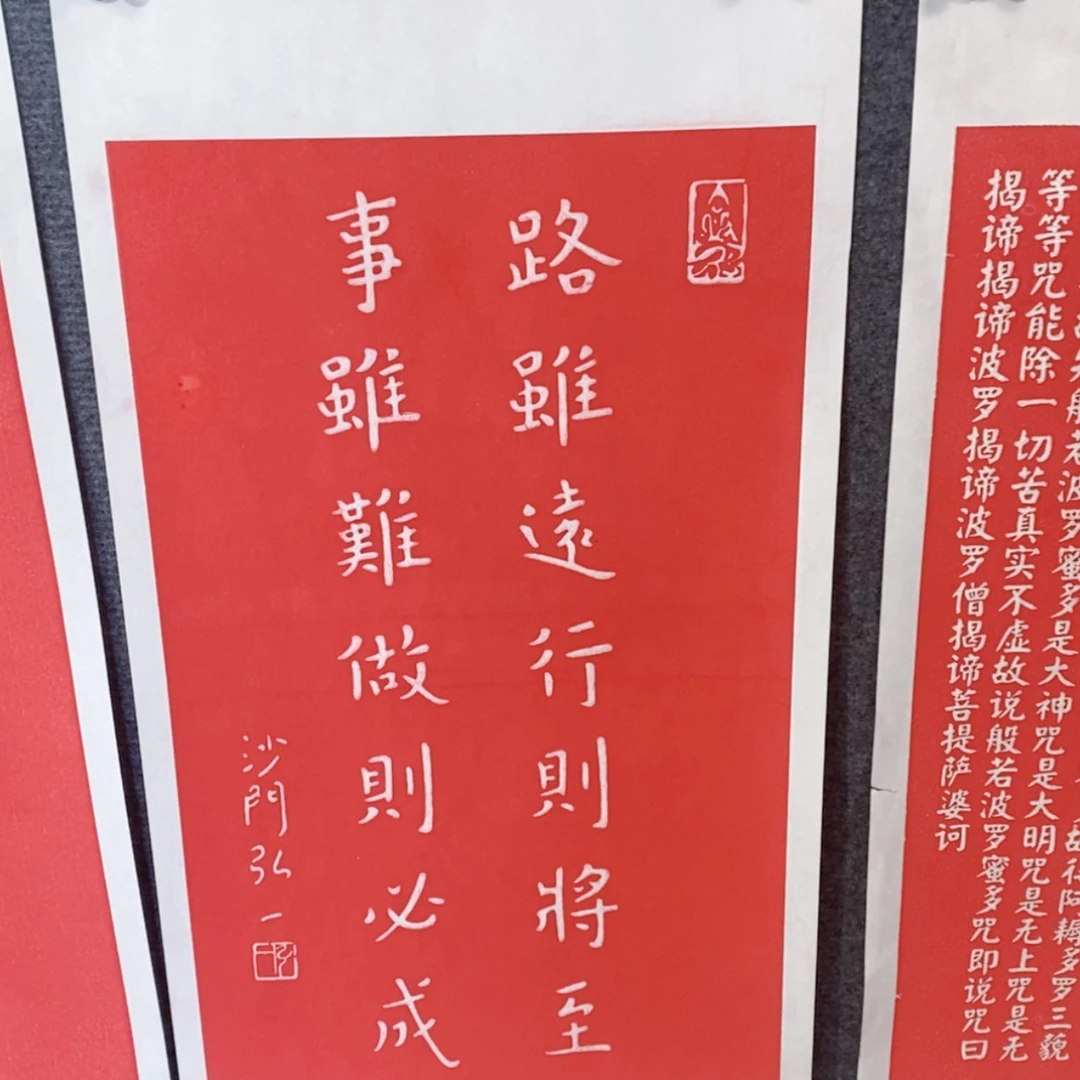 路雖遠行則將至
事雖難做則必成
沙門弘一
故得阿耨多罗三藐
知般若波罗蜜多是大神咒是大明咒是无上咒是无
等等咒能除一切苦真实不虚故说般若波罗蜜多咒即说咒曰
揭谛揭谛波罗揭谛波罗僧揭谛菩提萨婆诃